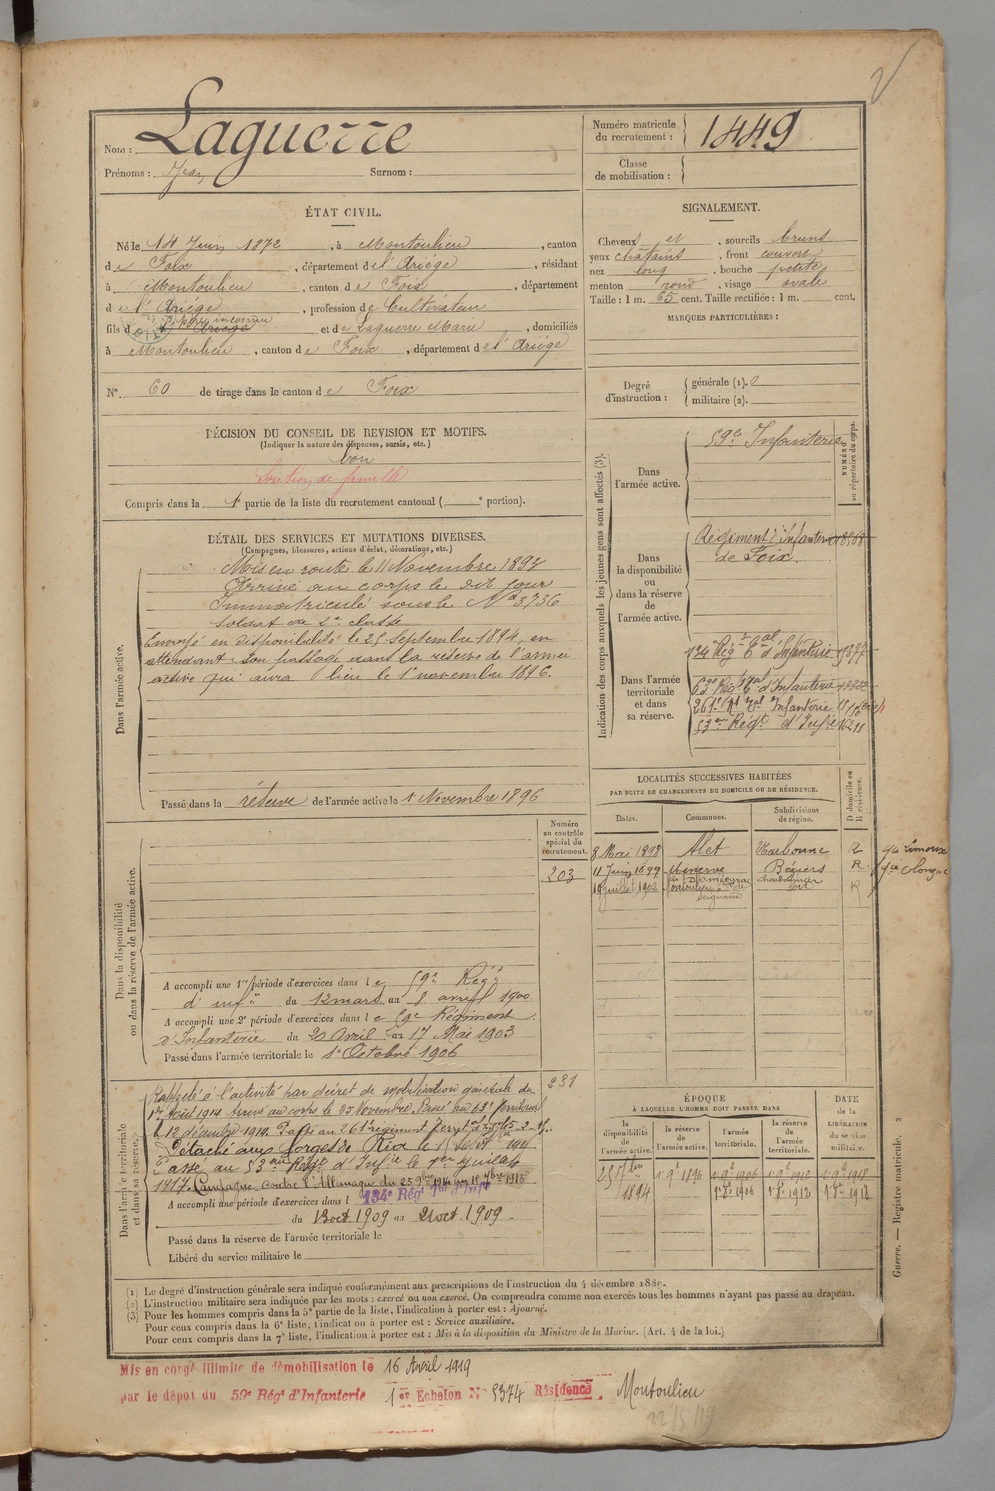 Nom : Laguerre
Prénoms : Jean Surnom :
Numéro matricule du recrutement : 1449
Classe de mobilisation :
ÉTAT CIVIL.
Né le 14 Juin 1872, à Montoulieu, canton
de Foix, département de l'Ariége, résidant
à Montoulieu, canton de Foix, département
de l'Ariége, profession de Cultivateur
fils de père inconnu et de Laguerre Marie, domiciliés
à Montoulieu, canton de Foix, département de l'Ariége
N° 60 de tirage dans le canton de Foix
SIGNALEMENT.
Cheveux et, sourcils bruns
yeux chatains, front couvert
nez long, bouche petite
menton rond, visage ovale
Taille : 1 m. 65 cent. Taille rectifiée : 1 m. cent.
MARQUES PARTICULIÈRES :
Degré d'instruction : générale (1). 0
militaire (2).
DÉCISION DU CONSEIL DE REVISION ET MOTIFS.
(Indiquer la nature des dispenses, sursis, etc.)
bon
Soutien de famille
Compris dans la 1e partie de la liste du recrutement cantonal ( e portion).
DÉTAIL DES SERVICES ET MUTATIONS DIVERSES.
(Campagnes, blessures, actions d'éclat, décorations, etc.)
Dans l'armée active.
Mis en route le 11 Novembre 1892
Arrivé au corps le dit jour
Immatriculé sous le N° 3736
Soldat de 2e classe
Envoyé en disponibilité le 25 Septembre 1894, en
attendant son passage dans la réserve de l'armée
active qui aura lieu le 1er novembre 1896.
Passé dans la réserve de l'armée active le 1er Novembre 1896
Indication des corps auxquels les jeunes gens sont affectés (3).
NUMÉRO au répertoire du corps.
Dans l'armée active.
59e Infanterie
Dans la disponibilité ou dans la réserve de l'armée active.
Régiment d'Infanterie
de Foix.
Dans l'armée territoriale et dans sa réserve.
134e Régt Tal d'Infanterie
63e Régt Tal d'Infanterie
261e Rt Tal Infanterie
53eme Régt d'Infie 16211
LOCALITÉS SUCCESSIVES HABITÉES
PAR SUITE DE CHANGEMENTS DE DOMICILE OU DE RÉSIDENCE.
Dates. Communes. Subdivisions de région. D domicile ou R résidence.
8 Mai 1898 Alet Narbonne R Limoux
11 Juin 1899 Minerve Béziers R Olonzac
19 Juillet 1902 R
Numéro au contrôle spécial du recrutement.
203
Dans la disponibilité ou dans la réserve de l'armée active.
A accompli une 1re période d'exercices dans le 59e Régt
d'infie du 12 mars au 8 avril 1900
A accompli une 2e période d'exercices dans le 59e Régiment
d'Infanterie du 20 Avril au 17 Mai 1903
Passé dans l'armée territoriale le 1er Octobre 1906
Dans l'armée territoriale et dans sa réserve.
231
Rappelé à l'activité par décret de mobilisation générale du
1er Août 1914 Arrivé au corps le 27 Novembre. Passé au 63e territorial
le 12 décembre 1914. Passé au 261e régiment
Détaché aux forges de Ria le
Passé au 53eme Régt d'Infie le 1er Juillet
1917. Campagne contre l'Allemagne du
A accompli une période d'exercices dans le 134e Régt Tal d'Infie
du 13 oct. 1909 au 21 oct. 1909.
Passé dans la réserve de l'armée territoriale le
Libéré du service militaire le
ÉPOQUE
À LAQUELLE L'HOMME DOIT PASSER DANS
la disponibilité de l'armée active. la réserve de l'armée active. l'armée territoriale. la réserve de l'armée territoriale. DATE de la LIBÉRATION du service militaire.
25 7bre 1894 1er 9e 1896 1er 9e 1906 1er 9e 1912 1er 9e 1918
1er 8e 1906 1er 8e 1912 1er 8e 1918
Guerre. — Registre matricule. 2
(1) Le degré d'instruction générale sera indiqué conformément aux prescriptions de l'instruction du 4 décembre 1889.
(2) L'instruction militaire sera indiquée par les mots : exercé ou non exercé. On comprendra comme non exercés tous les hommes n'ayant pas passé au drapeau.
(3) Pour les hommes compris dans la 5e partie de la liste, l'indication à porter est : Ajourné.
Pour ceux compris dans la 6e liste, l'indication à porter est : Service auxiliaire.
Pour ceux compris dans la 7e liste, l'indication à porter est : Mis à la disposition du Ministre de la Marine. (Art. 4 de la loi.)
Mis en congé illimité de démobilisation le 16 Avril 1919
par le dépôt du 59e Régt d'Infanterie 1er Echelon N° 5374 Résidence Montoulieu
22/5/19